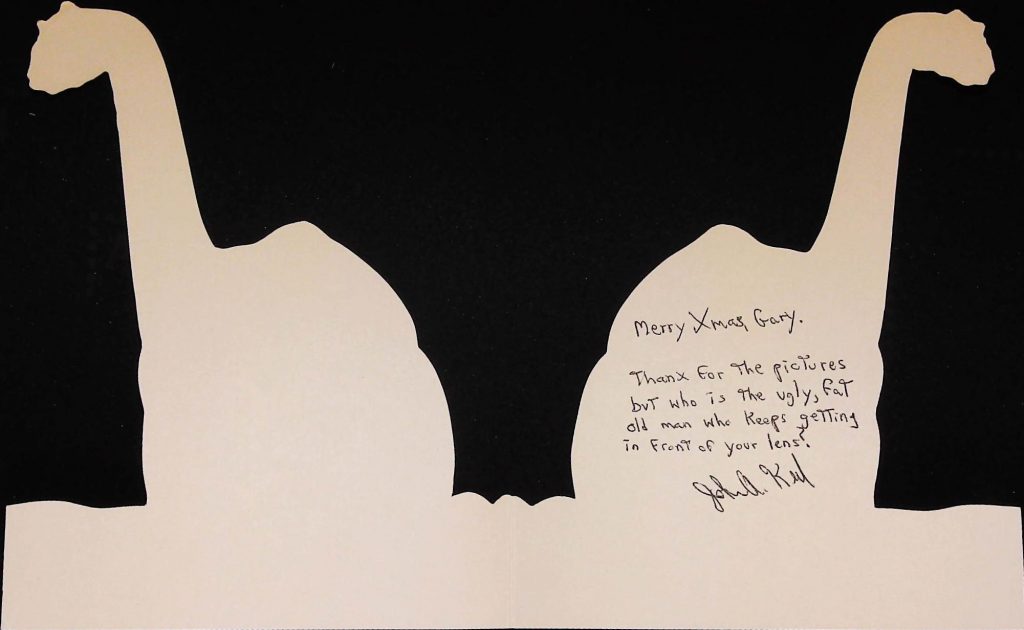 Merry Xmas, Gary.
Thanx for the pictures
but who is the ugly, fat
old man who keeps getting
in front of your lens?
John A. Keel